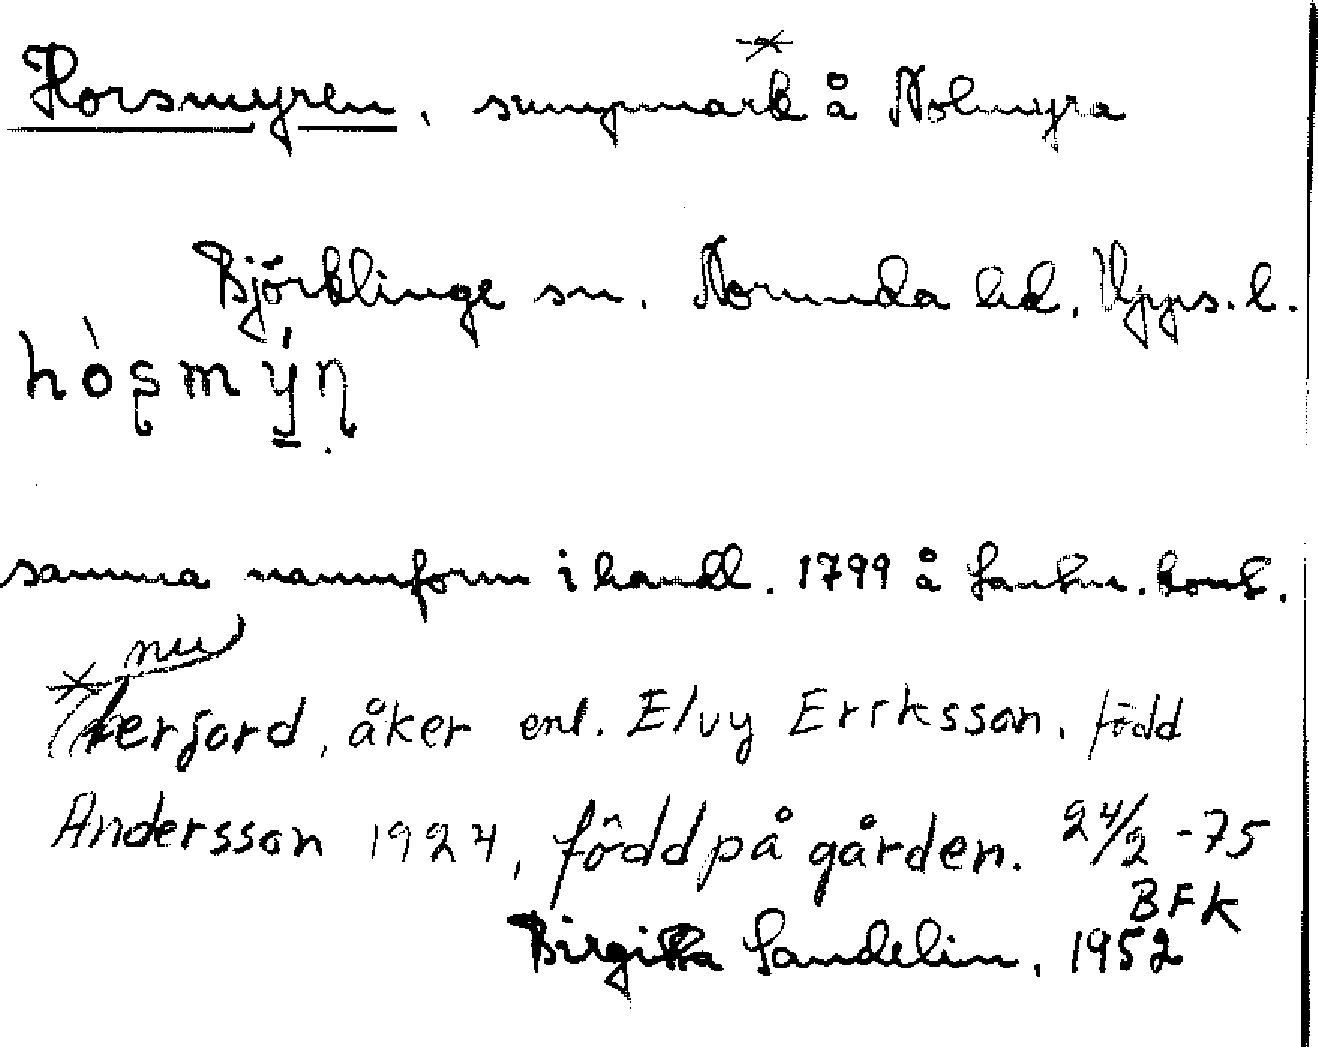 Horsmyren, sumpmark* å Nolmyra
Björklinge sn. Norunda hd. Upps. l.
hòʂmýɳ
samma namnform i handl. 1799 å lantm. kont.
* nu
åkerjord, åker enl. Elvy Eriksson, född
Andersson 1924, född på gården. 24/2 -75
BFK
Birgitta Sandelin, 1952